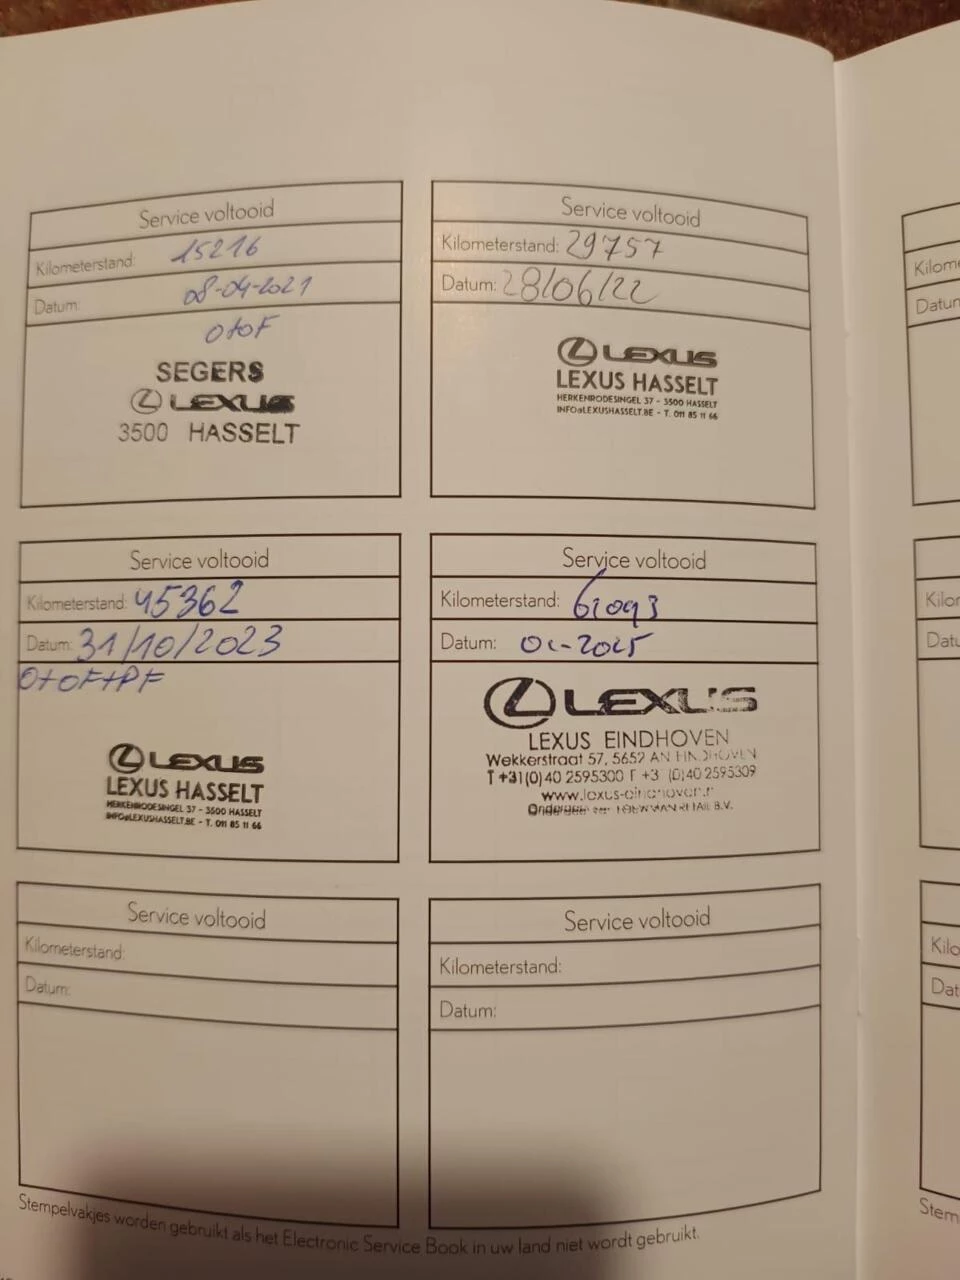 Service voltooid
Kilometerstand: 15216
Datum: 08-04-2021
O+oF
SEGERS
LEXUS
3500 HASSELT
Service voltooid
Kilometerstand: 29757
Datum: 28/06/22
LEXUS
LEXUS HASSELT
HERKENRODESINGEL 37 - 3500 HASSELT
INFO@LEXUSHASSELT.BE - T. 011 85 11 66
Service voltooid
Kilometerstand: 45362
Datum: 31/10/2023
O+OF+PF
LEXUS
LEXUS HASSELT
HERKENRODESINGEL 37 - 3500 HASSELT
INFO@LEXUSHASSELT.BE - T. 011 85 11 66
Service voltooid
Kilometerstand: 61093
Datum: 2025
LEXUS
LEXUS EINDHOVEN
Wekkerstraat 57, 5652 AN EINDHOVEN
T +31(0)40 2595300 F +3 (0)40 2595309
Service voltooid
Kilometerstand:
Datum:
Service voltooid
Kilometerstand:
Datum:
Stempelvakjes worden gebruikt als het Electronic Service Book in uw land niet wordt gebruikt.
Kilome
Datum
Kilo
Datu
Kilo
Dat
Stem